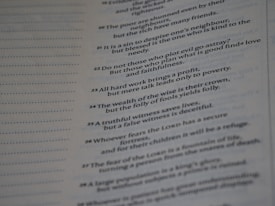 the righteous
the wicked
20 The poor are shunned even by their
neighbours,
but the rich have many friends.
21 It is a sin to despise one's neighbour,
but blessed is the one who is kind to the
needy.
22 Do not those who plot evil go astray?
But those who plan what is good find love
and faithfulness.
23 All hard work brings a profit,
but mere talk leads only to poverty.
24 The wealth of the wise is their crown,
but the folly of fools yields folly.
25 A truthful witness saves lives,
but a false witness is deceitful.
26 Whoever fears the LORD has a secure
fortress,
and for their children it will be a refuge.
27 The fear of the LORD is a fountain of life,
turning a person from the snares of death.
28 A large population is a king's glory,
but without subjects a prince is ruined.
29 Whoever is patient has great understanding,